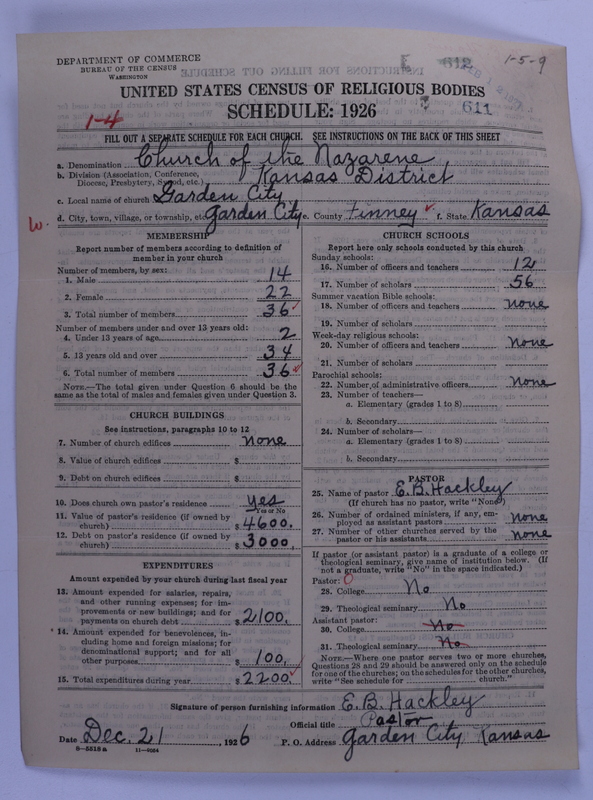 DEPARTMENT OF COMMERCE
BUREAU OF THE CENSUS
WASHINGTON
612
1-5-9
UNITED STATES CENSUS OF RELIGIOUS BODIES
SCHEDULE: 1926
611
1-4
FILL OUT A SEPARATE SCHEDULE FOR EACH CHURCH. SEE INSTRUCTIONS ON THE BACK OF THIS SHEET
a. Denomination Church of the Nazarene
b. Division (Association, Conference, Diocese, Presbytery, Synod, etc.) Kansas District
c. Local name of church Garden City
d. City, town, village, or township, etc. Garden City e. County Finney f. State Kansas
W.
MEMBERSHIP
Report number of members according to definition of
member in your church
Number of members, by sex:
1. Male 14
2. Female 22
3. Total number of members 36
Number of members under and over 13 years old:
4. Under 13 years of age 2
5. 13 years old and over 34
6. Total number of members 36
NOTE.—The total given under Question 6 should be the
same as the total of males and females given under Question 3.
CHURCH BUILDINGS
See instructions, paragraphs 10 to 12
7. Number of church edifices none
8. Value of church edifices $
9. Debt on church edifices $
10. Does church own pastor's residence yes
Yes or No
11. Value of pastor's residence (if owned by
church) $ 4600.
12. Debt on pastor's residence (if owned by
church) $ 3000.
EXPENDITURES
Amount expended by your church during last fiscal year
13. Amount expended for salaries, repairs,
and other running expenses; for im-
provements or new buildings; and for
payments on church debt $ 2100.
14. Amount expended for benevolences, in-
cluding home and foreign missions; for
denominational support; and for all
other purposes $ 100.
15. Total expenditures during year $ 2200.
CHURCH SCHOOLS
Report here only schools conducted by this church
Sunday schools:
16. Number of officers and teachers 12
17. Number of scholars 56
Summer vacation Bible schools:
18. Number of officers and teachers none
19. Number of scholars
Week-day religious schools:
20. Number of officers and teachers none
21. Number of scholars
Parochial schools:
22. Number of administrative officers none
23. Number of teachers—
a. Elementary (grades 1 to 8)
b. Secondary
24. Number of scholars—
a. Elementary (grades 1 to 8)
b. Secondary
PASTOR
25. Name of pastor E. B. Hackley
(If church has no pastor, write "None")
26. Number of ordained ministers, if any, em-
ployed as assistant pastors none
27. Number of other churches served by the
pastor or his assistants none
If pastor (or assistant pastor) is a graduate of a college or
theological seminary, give name of institution below. (If
not a graduate, write "No" in the space indicated.)
Pastor: 0
28. College No
29. Theological seminary No
Assistant pastor:
30. College No
31. Theological seminary No
NOTE.—Where one pastor serves two or more churches,
Questions 28 and 29 should be answered only on the schedule
for one of the churches; on the schedules for the other churches,
write "See schedule for church."
Signature of person furnishing information E. B. Hackley
Official title Pastor
Date Dec. 21, 1926 P. O. Address Garden City Kansas
8—5818a 11—9094